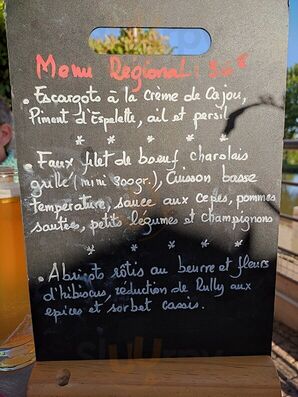 Menu Régional : 36€
• Escargots à la Crème de Cajou,
Piment d'Espelette, ail et persil
* * * * *
• Faux filet de bœuf charolais
grillé (mini 300gr.), Cuisson basse
température, sauce aux cèpes, pommes
sautées, petits légumes et champignons
* * * *
• Abricots rôtis au beurre et fleurs
d'hibiscus, réduction de Rully aux
épices et sorbet cassis.